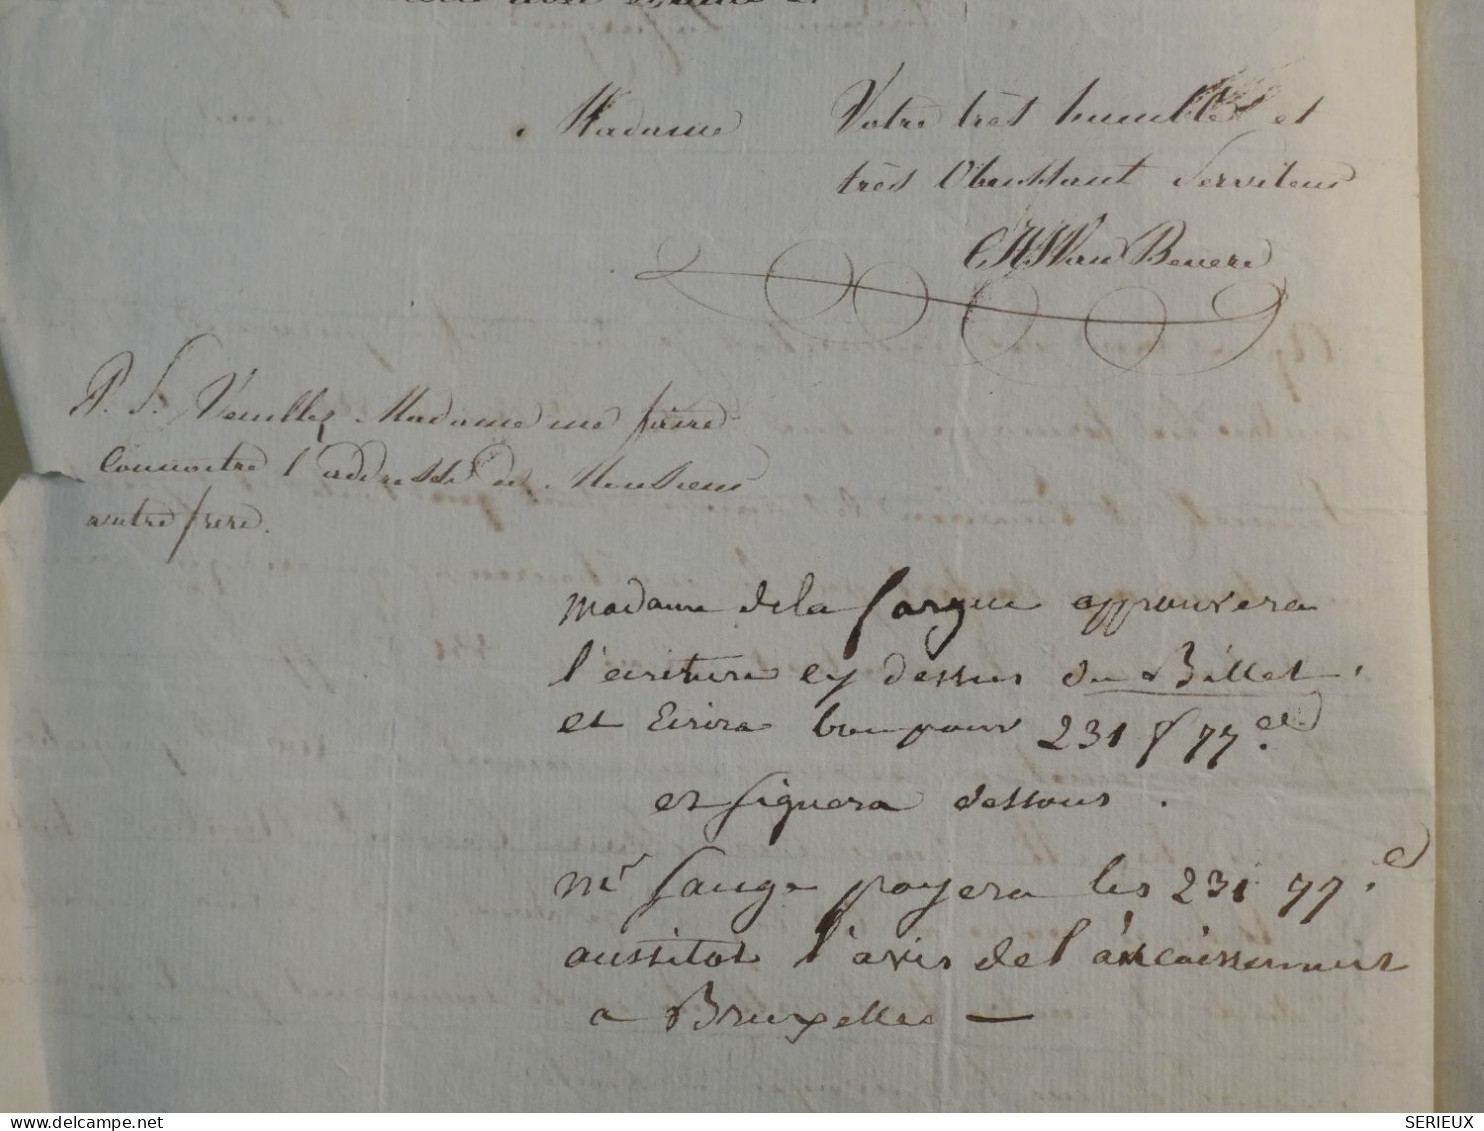 Madame Votre très humble et
très Obeissant Serviteur
Van Bevere
P. S. Veuillez Madame me faire
Connoitre l'addresse de Monsieur
votre frere.
Madame dela fargue approuvera
l'ecriture cy dessus du Billet.
et Ecrira bon pour 231 f 77.c
et signera dessous.
mr fauge payera les 231 77.c
aussitot l'avis de l'encaissement
a Bruxelles —
www.delcampe.net
SERIEUX